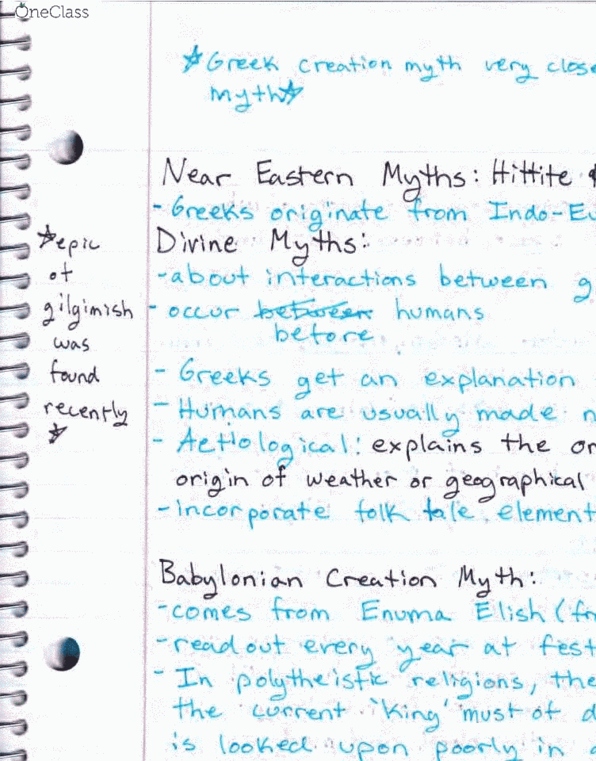 OneClass
☆Greek creation myth very close
myth☆
Near Eastern Myths: Hittite &
-Greeks originate from Indo-Eu
Divine Myths:
-about interactions between g
-occur between humans
before
- Greeks get an explanation
- Humans are usually made n
- Aetiological: explains the or
origin of weather or geographical
-incorporate folk tale element
☆epic
of
gilgimish
was
found
recently
☆
Babylonian Creation Myth:
-comes from Enuma Elish (fr
-read out every year at fest
- In polytheistic religions, the
the current 'King' must of d
is looked upon poorly in